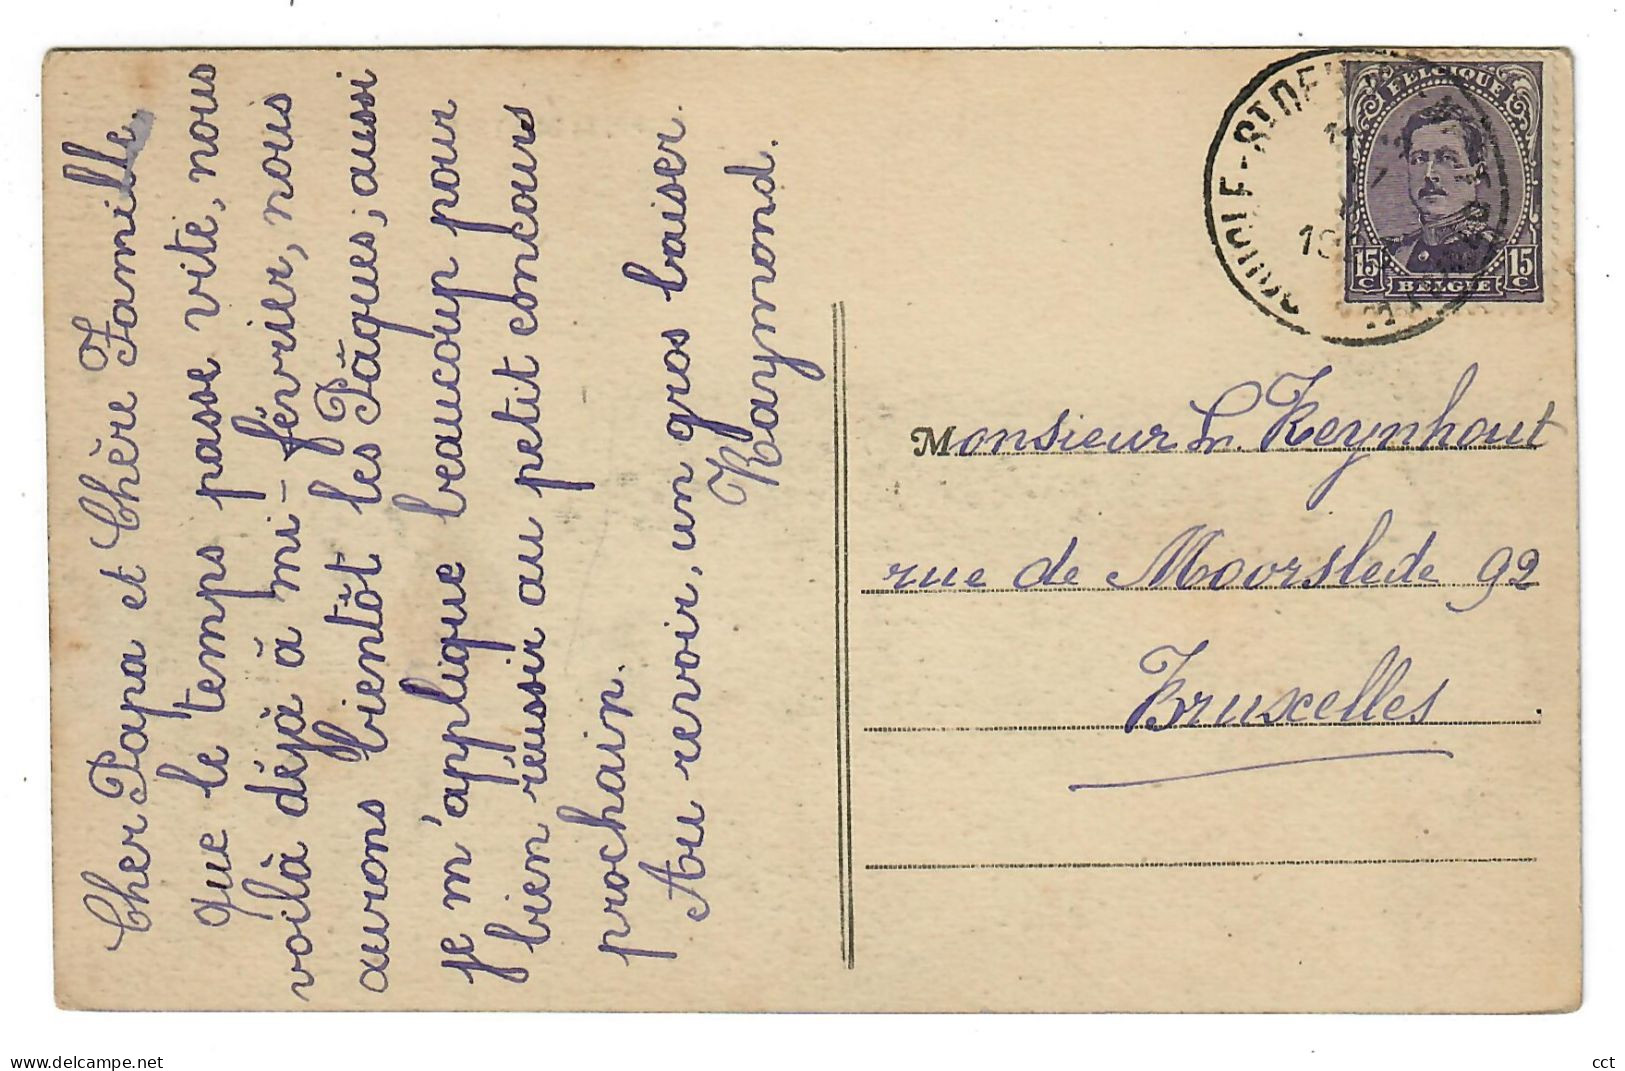 Cher Papa et Chère Famille,
que le temps passe vite, nous
voilà déjà à mi-février, nous
aurons bientôt les Pâques; aussi
je m'applique beaucoup pour
bien réussir au petit concours
prochain.
Au revoir, un gros baiser
Raymond.
BELGIQUE
15 c
BELGIE
15 c
Monsieur L. Keynhout
rue de Moorslede 92
Bruxelles
www.delcampe.net
cct